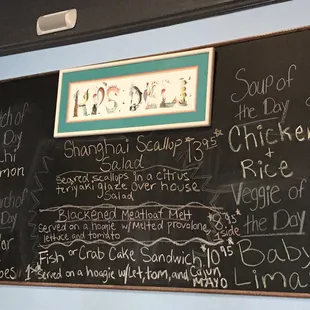 KIPS DELI
Shanghai Scallop $13.95
Salad
Seared scallops in a citrus
teriyaki glaze over house
Salad
Blackened Meatloaf Melt $8.95
served on a hoagie w/ Melted provolone 1side
lettuce and tomato
Fish or Crab Cake Sandwich $10.95
Served on a hoagie w/ Let, tom, and Cajun
MAYO
Soup of
the Day
Chicken
+
Rice
Veggie of
the Day
Baby
Limas
of
Day